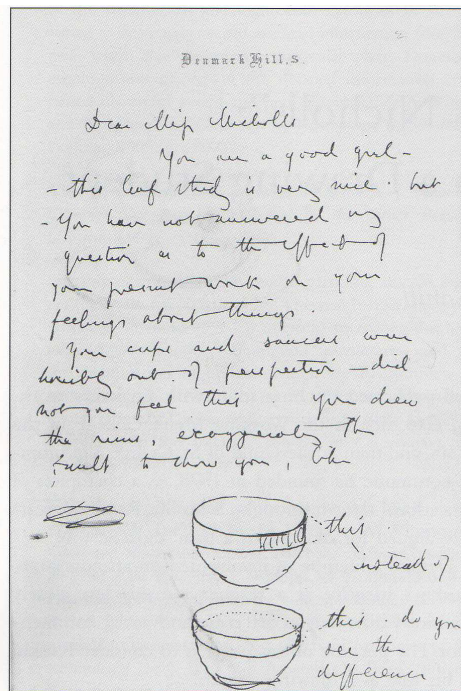 Denmark Hill, S.
Dear Miss Nicholls
You are a good girl -
- this leaf study is very nice. but
- You have not answered my
question as to the effect of
your present work on your
feelings about things.
Your cups and saucers were
horribly out of perspective - did
not you feel this you drew
the rims, exaggerating the
fault to show you, like
this.
instead of
this. do you
see the
difference